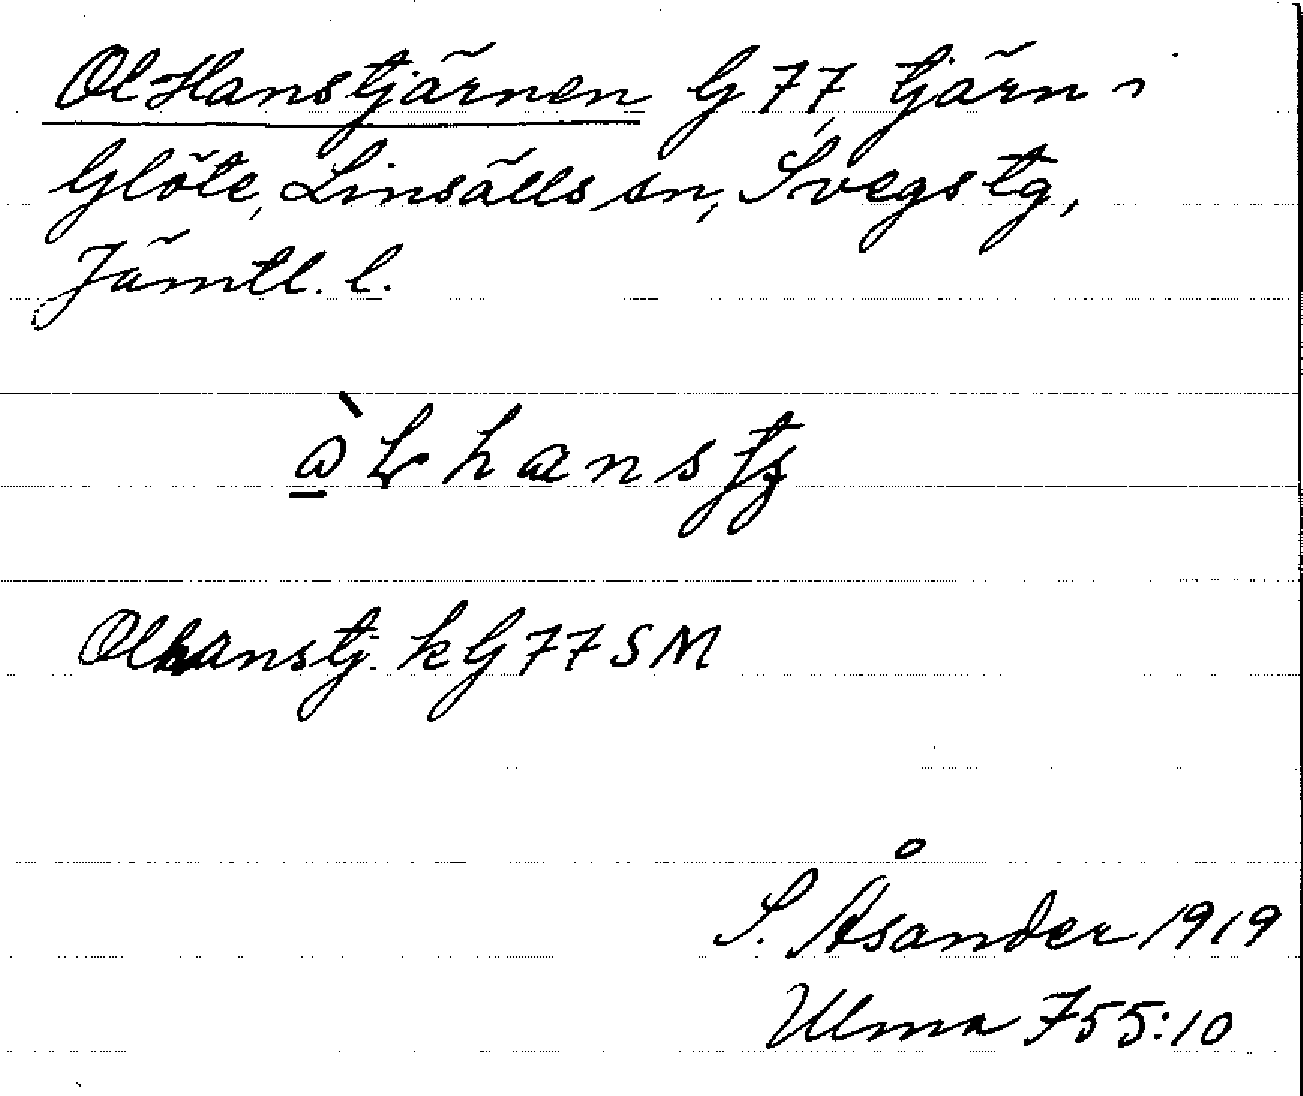 Ol Hanstjärnen G 77, tjärn i
Glöte, Linsälls sn, Svegs tg,
Jämtl. l.
Olhanstj. k G 77 SM
S. Åsander 1919
Ulma 755:10